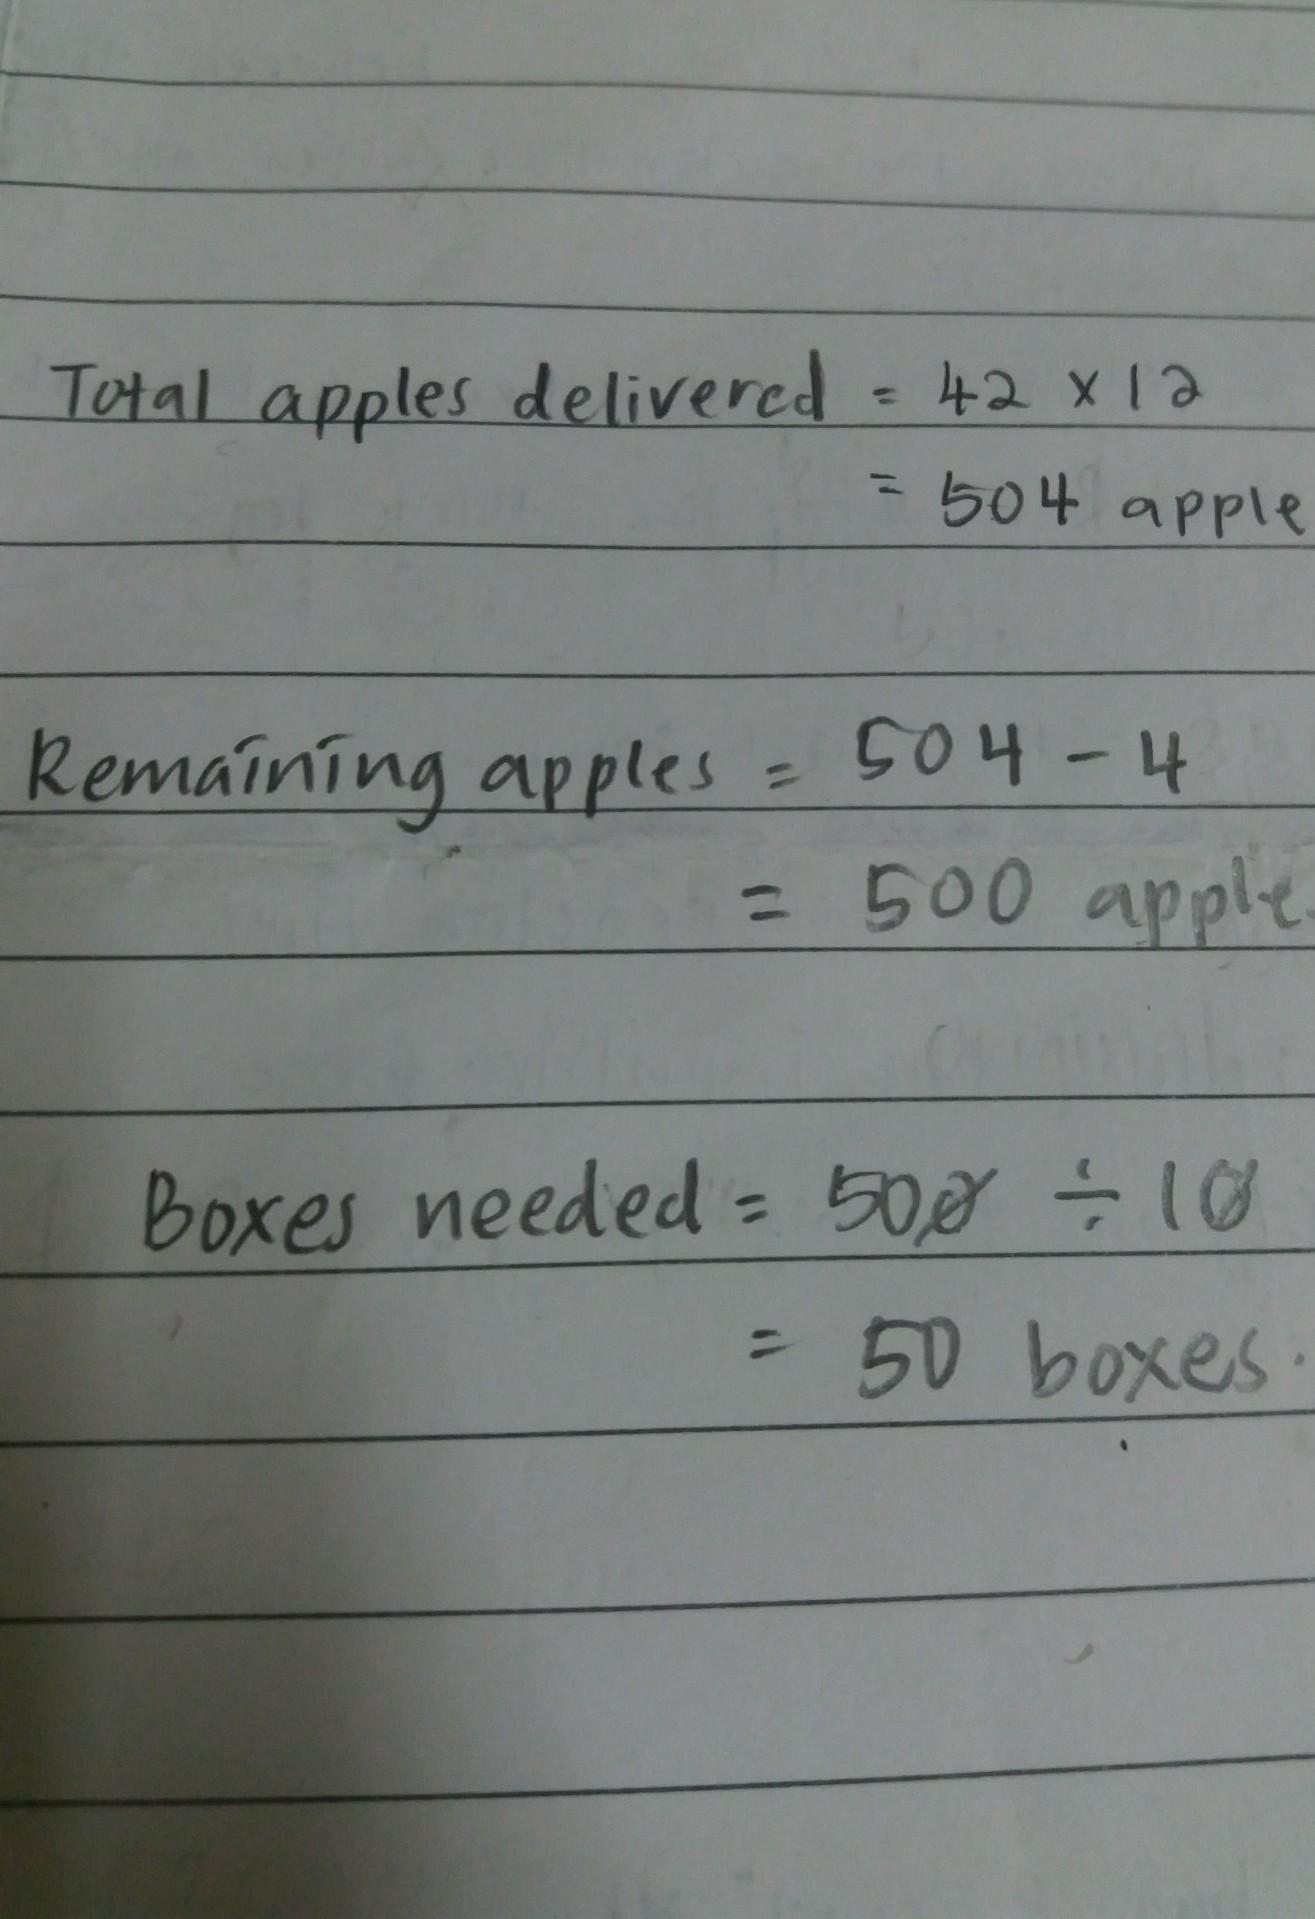 Total apples delivered = 42 x 12
= 504 apple
Remaining apples = 504 - 4
= 500 apple
Boxes needed = 500 ÷ 10
= 50 boxes.